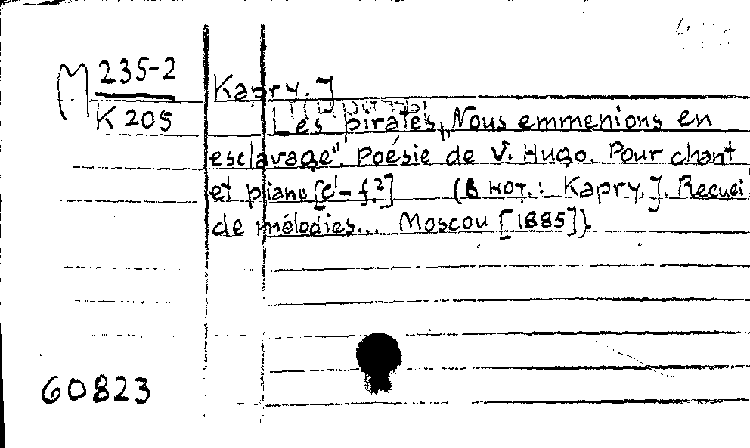 М 235-2
K 205
Kapry. J
Les pirates „Nous emmenions en
esclavage". Poésie de V. Hugo. Pour chant
et piano [c'–f²] (В нот.: Kapry. J. Recuei
de mélodies... Moscou [1885])
60823